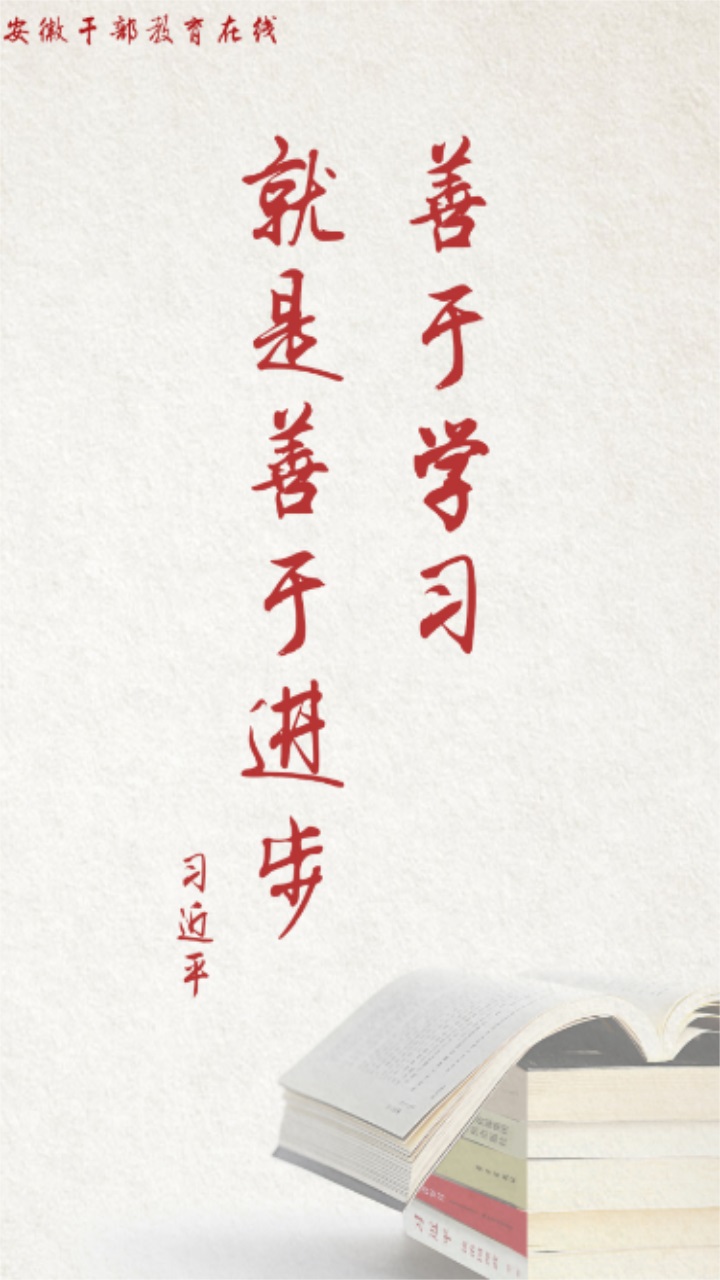 安徽干部教育在线
善于学习
就是善于进步
习近平
习近平